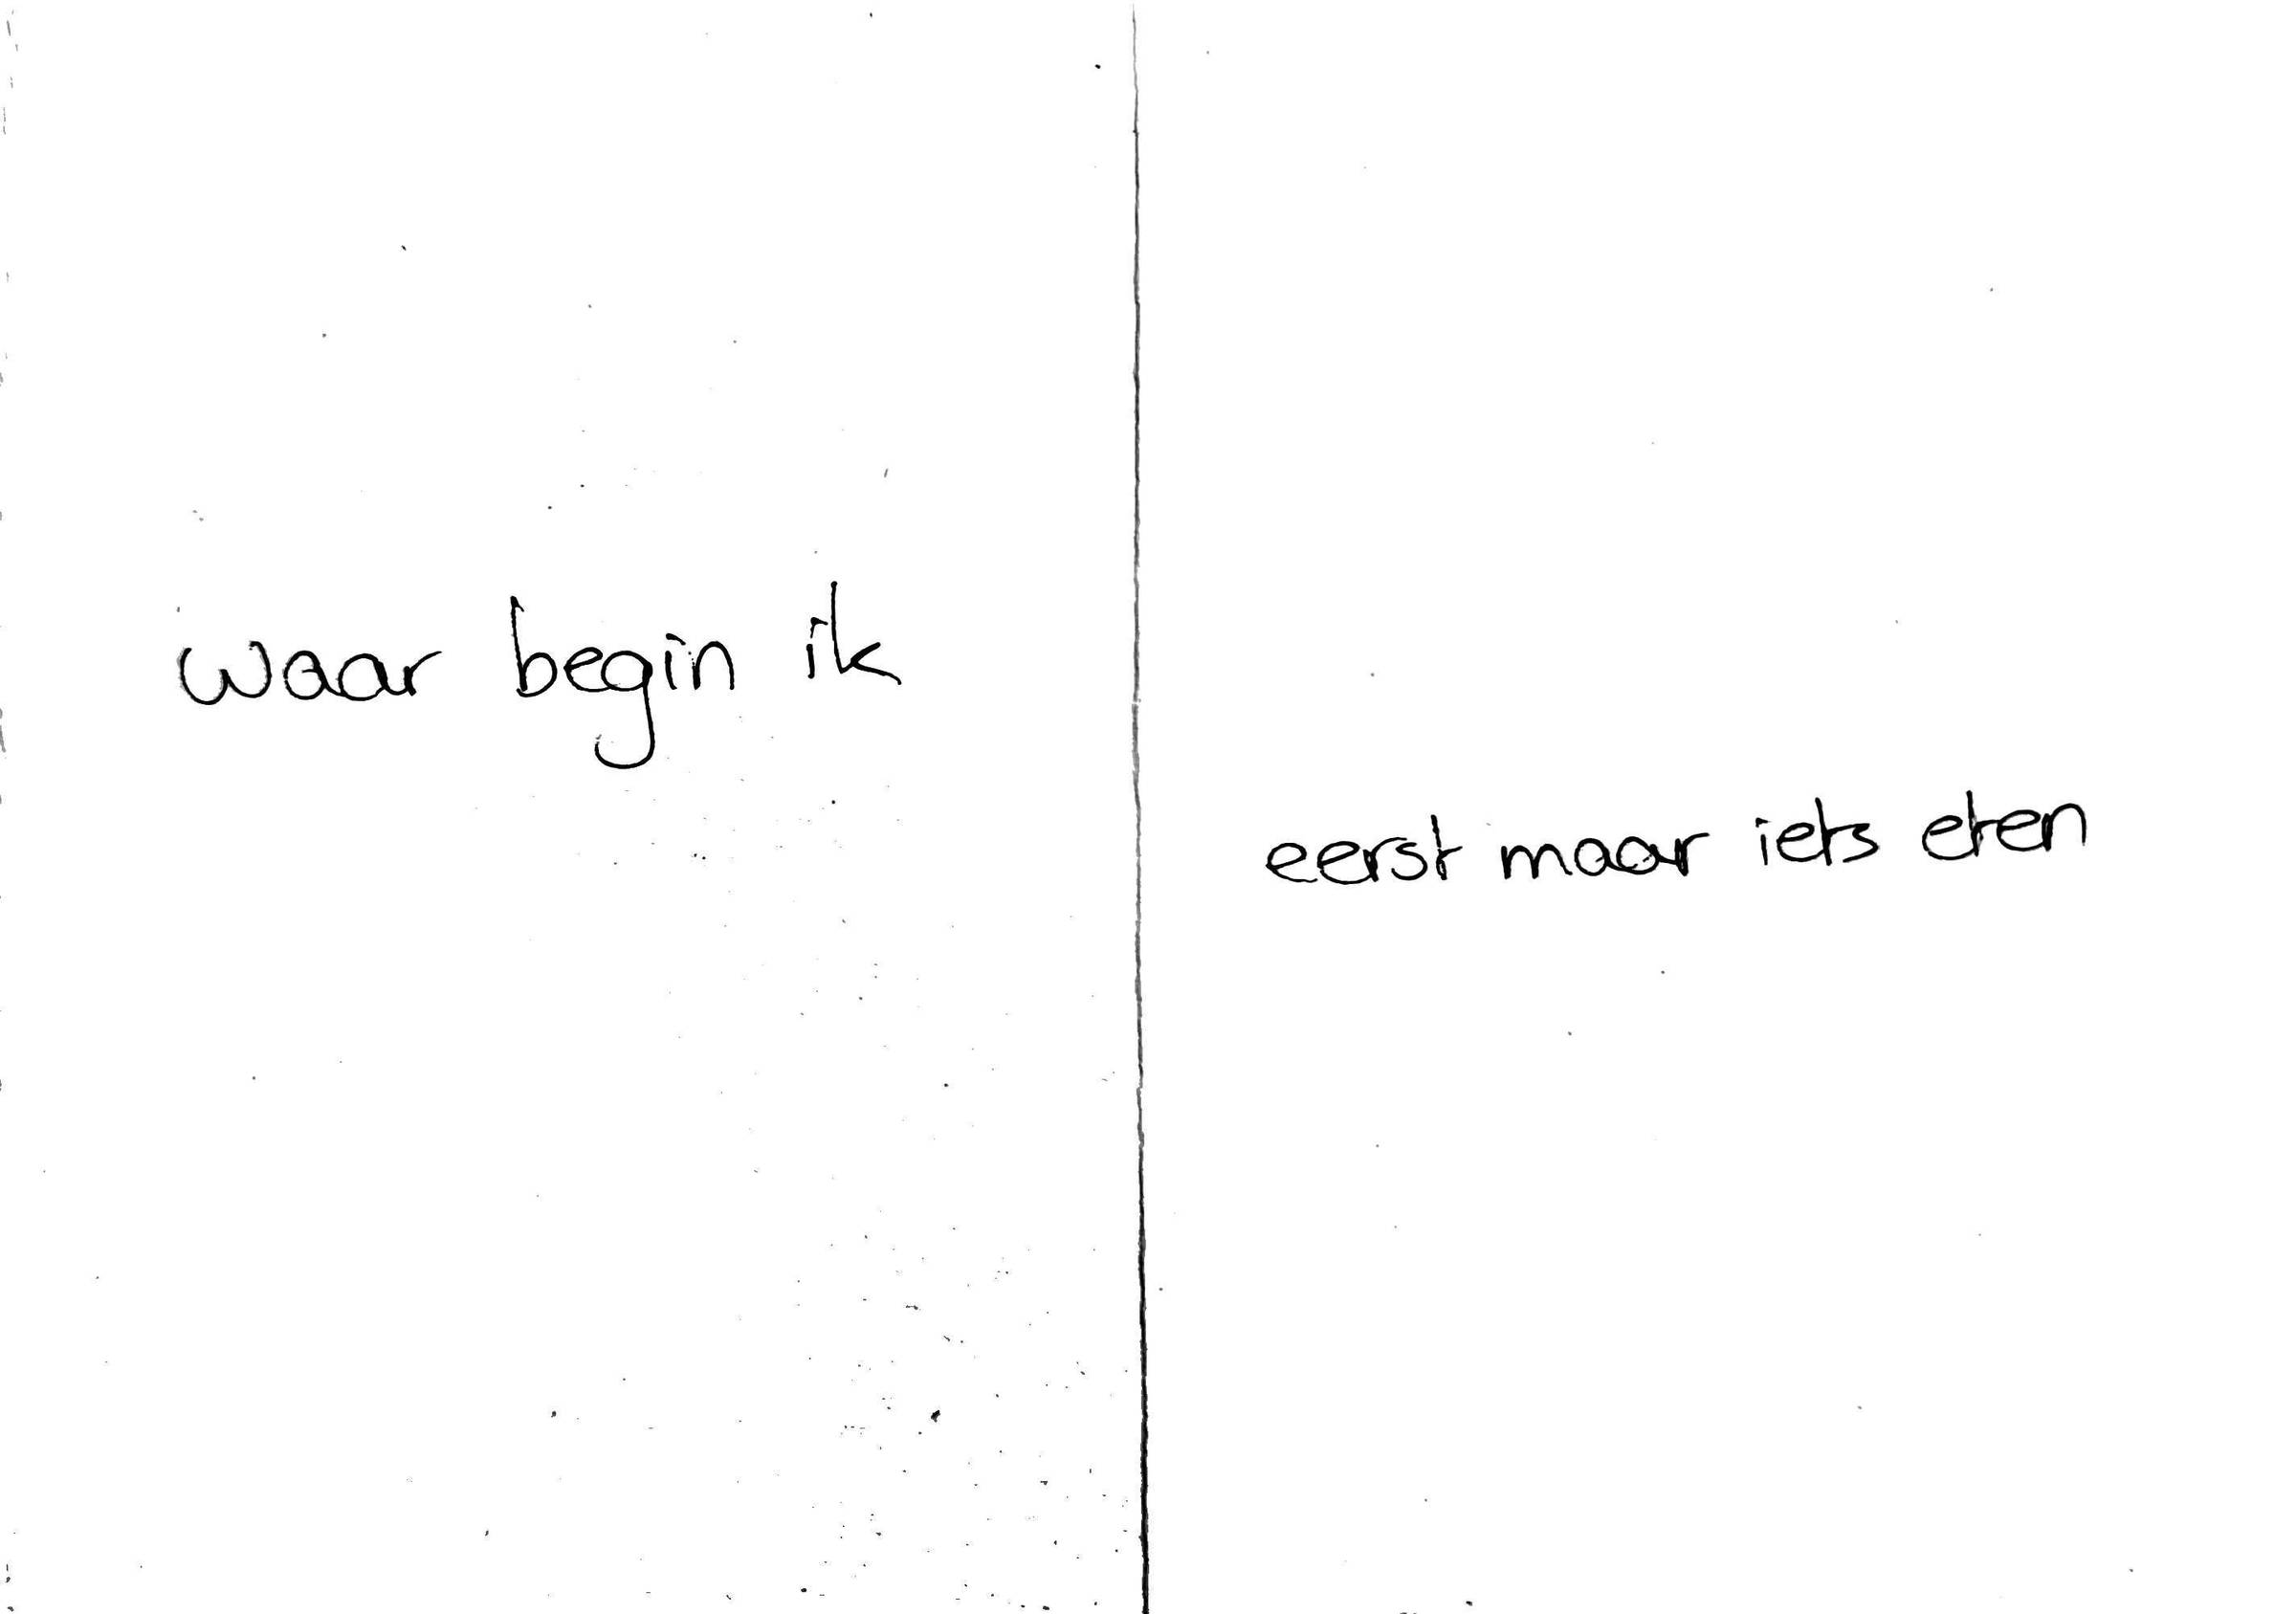 waar begin ik
eerst maar iets eten